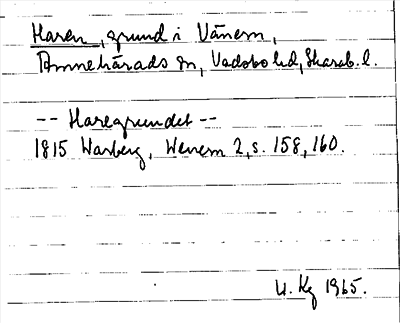 Haren, grund i Vänern,
Amnehärads sn, Vadsbo hd, Skarab. l.
-- Haregrundet --
1815 Warberg, Wenern 2, s. 158, 160.
U. Kg 1965.